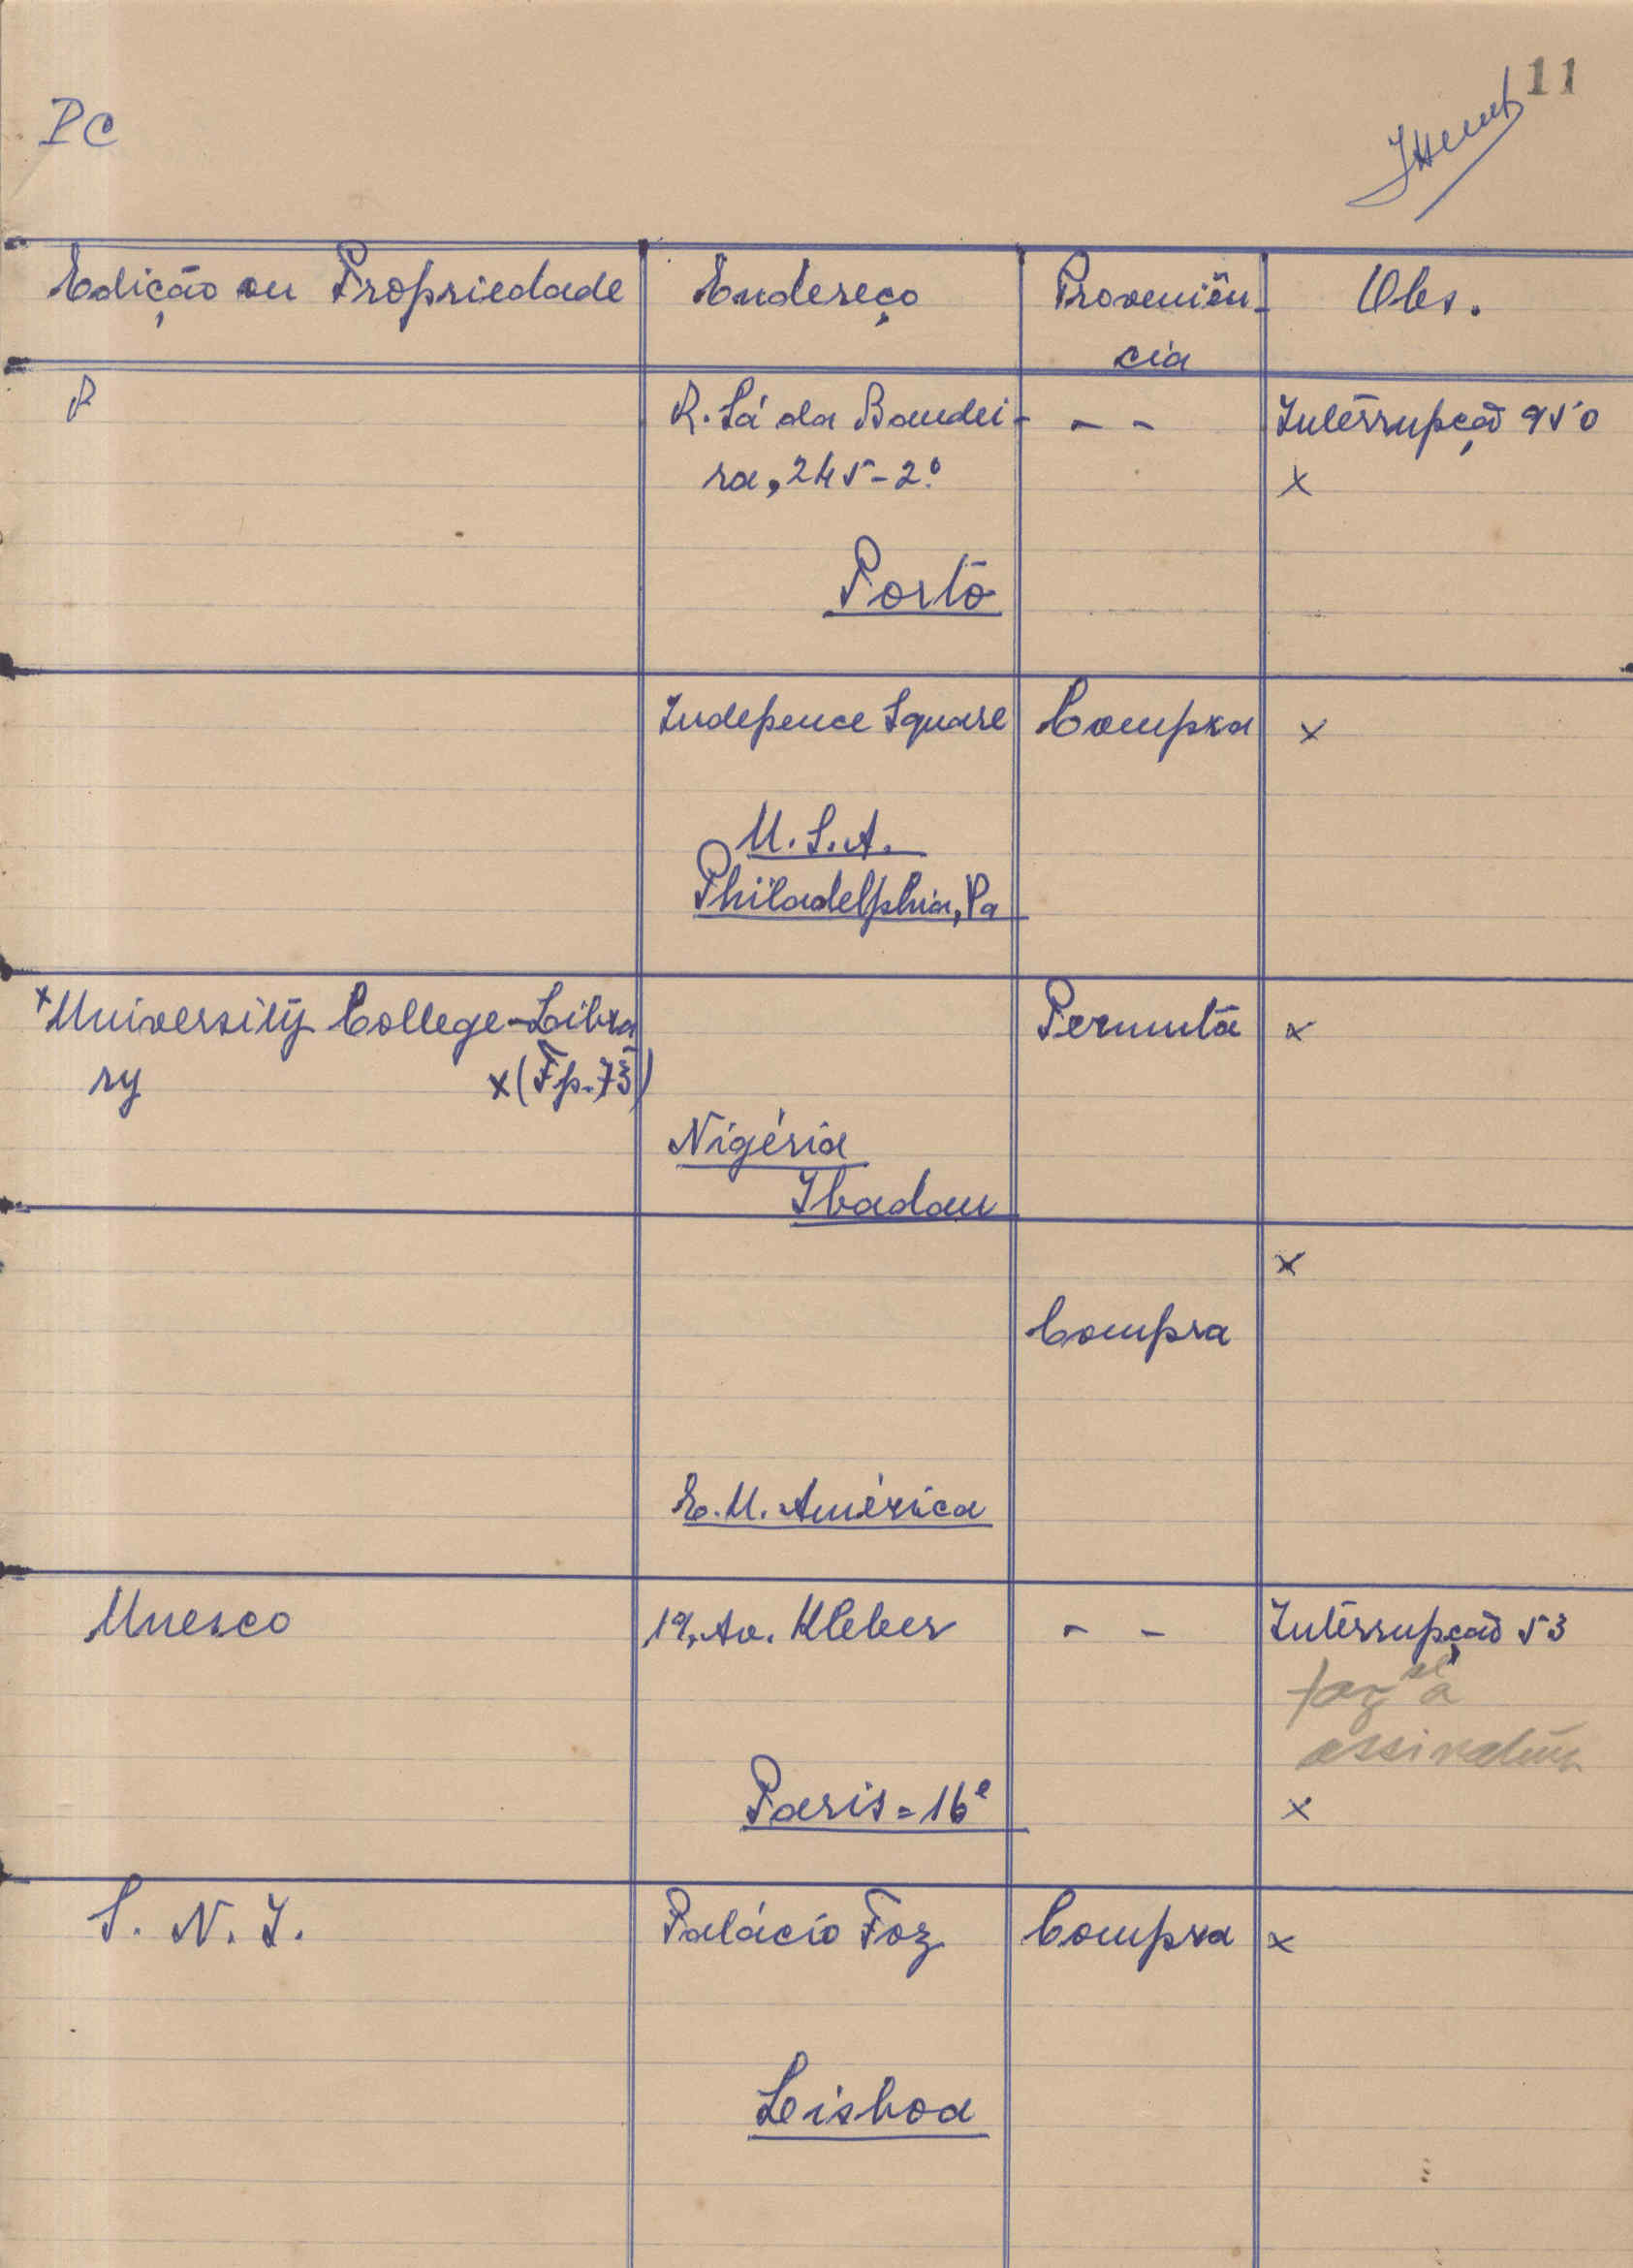 11
PC
Edição ou Propriedade Endereço Proveniên-
cia Obs.
P R. Sá da Bandei- - - Interrupção 950
ra, 245-2º x
Porto
Indepence Square Compra x
U.S.A.
Philadelphia, Pa
x University College-Libra Permuta x
ry x (Fp. 73)
Nigéria
Ibadan
x
Compra
E.U. América
Unesco 19, Av. Kleber - - Interrupção 53
faz se a
assinatura
Paris = 16e x
S. N. I. Palácio Foz Compra x
Lisboa